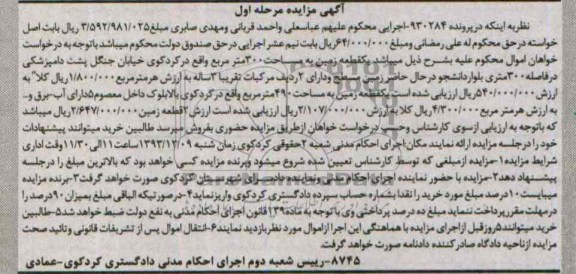 آگهی مزایده مرحله اول
نظریه اینکه درپرونده ۹۳۰۲۸۴-اجرایی محکوم علیهم عباسعلی واحمد قربانی ومهدی صابری مبلغ۳/۵۹۲/۹۸۱/۰۲۵ ریال بابت اصل
خواسته درحق محکوم له علی رمضانی ومبلغ۶۴/۰۰۰/۰۰۰ریال بابت نیم عشر اجرایی درحق صندوق دولت محکوم میباشد باتوجه به درخواست
خواهان اموال محکوم علیه بشرح ذیل میباشد.یکقطعه زمین به مساحت۳۰۰متر مربع واقع درکردکوی خیابان جنگل پشت دامپزشکی
درفاصله ۳۰۰متری بلواردانشجو درحال حاضر زمین مسطح ودارای ۲ردیف مرکبات تقریبا ۳ساله به ارزش هرمترمربع۱/۸۰۰/۰۰۰ریال کلا" به
ارزش۵۴۰/۰۰۰/۰۰۰ریال ارزیابی شده است یکقطعه زمین به مساحت۴۹۰مترمربع واقع درکردکوی بالابلوک داخل معصوم۵دارای آب-برق و...
به ارزش هرمتر مربع۴/۳۰۰/۰۰۰ریال کلا به ارزش ۲/۱۰۷/۰۰۰/۰۰۰ریال ارزیابی شده است ارزش۲قطعه زمین۲/۶۴۷/۰۰۰/۰۰۰ریال میباشد
که باتوجه به ارزیابی ازسوی کارشناس وحسب درخواست خواهان ازطریق مزایده حضوری بفروش میرسد طالبین خرید میتوانند پیشنهادات
خود را درجلسه مزایده ارائه نمایند مکان:اجرای احکام مدنی شعبه ۲حقوقی کردکوی زمان شنبه ۱۳۹۳/۱۲/۰۹ساعت۱۱الی۱۱/۳۰وقت اداری
شرایط مزایده۱-مزایده ازمبلغی که توسط کارشناس تعیین شده شروع میشود وبرنده مزایده کسی خواهد بود که بالاترین مبلغ را درجلسه
پیشنهاد دهد۲-مزایده با حضور نماینده اجرای احکام مدنی ونماینده دادسرای شهرستان کردکوی صورت خواهد گرفت۳-برنده مزایده
میبایست۱۰درصد مبلغ مورد خرید را نقدا بشماره حساب سپرده دادگستری کردکوی واریزنماید۴-درصورتیکه الباقی مبلغ بمیزان ۹۰درصد را
درمهلت مقررپرداخت ننماید مبلغ ده درصد پرداختی وی با توجه به ماده۱۳۹قانون اجرای احکام مدنی به نفع دولت ضبط خواهد شد۵-طالبین
خرید میتوانند۵روزقبل ازاجرای مزایده با هماهنگی این اجرا ازاموال مورد نظربازدید نمایند۶-انتقال اموال پس از تشریفات قانونی وتائید صحت
مزایده ازناحیه دادگاه صادرکننده دادنامه صورت خواهد گرفت.
۸۷۴۵-رییس شعبه دوم اجرای احکام مدنی دادگستری کردکوی-عمادی